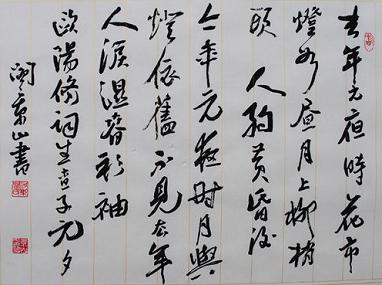 去年元夜時花市
燈如晝月上柳梢
頭人約黃昏後
今年元夜時月與
燈依舊不見去年
人淚濕春衫袖
歐陽修詞生查子元夕
山書